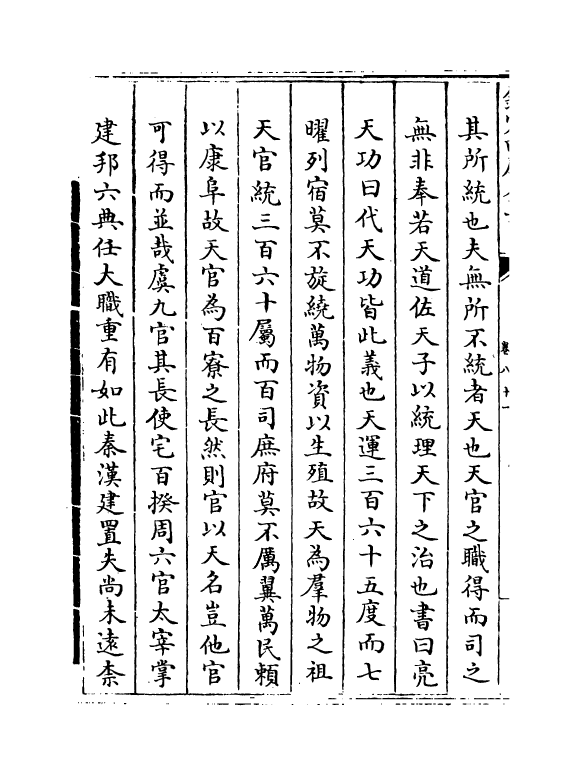 其所統也夫無所不統者天也天官之職得而司之
無非奉若天道佐天子以統理天下之治也書曰亮
天功曰代天功皆此義也天運三百六十五度而七
曜列宿莫不旋繞萬物資以生殖故天為羣物之祖
天官統三百六十屬而百司庶府莫不厲翼萬民賴
以康阜故天官為百寮之長然則官以天名豈他官
可得而並哉虞九官其長使宅百揆周六官太宰掌
建邦六典任大職重有如此秦漢建置失尚未遠柰